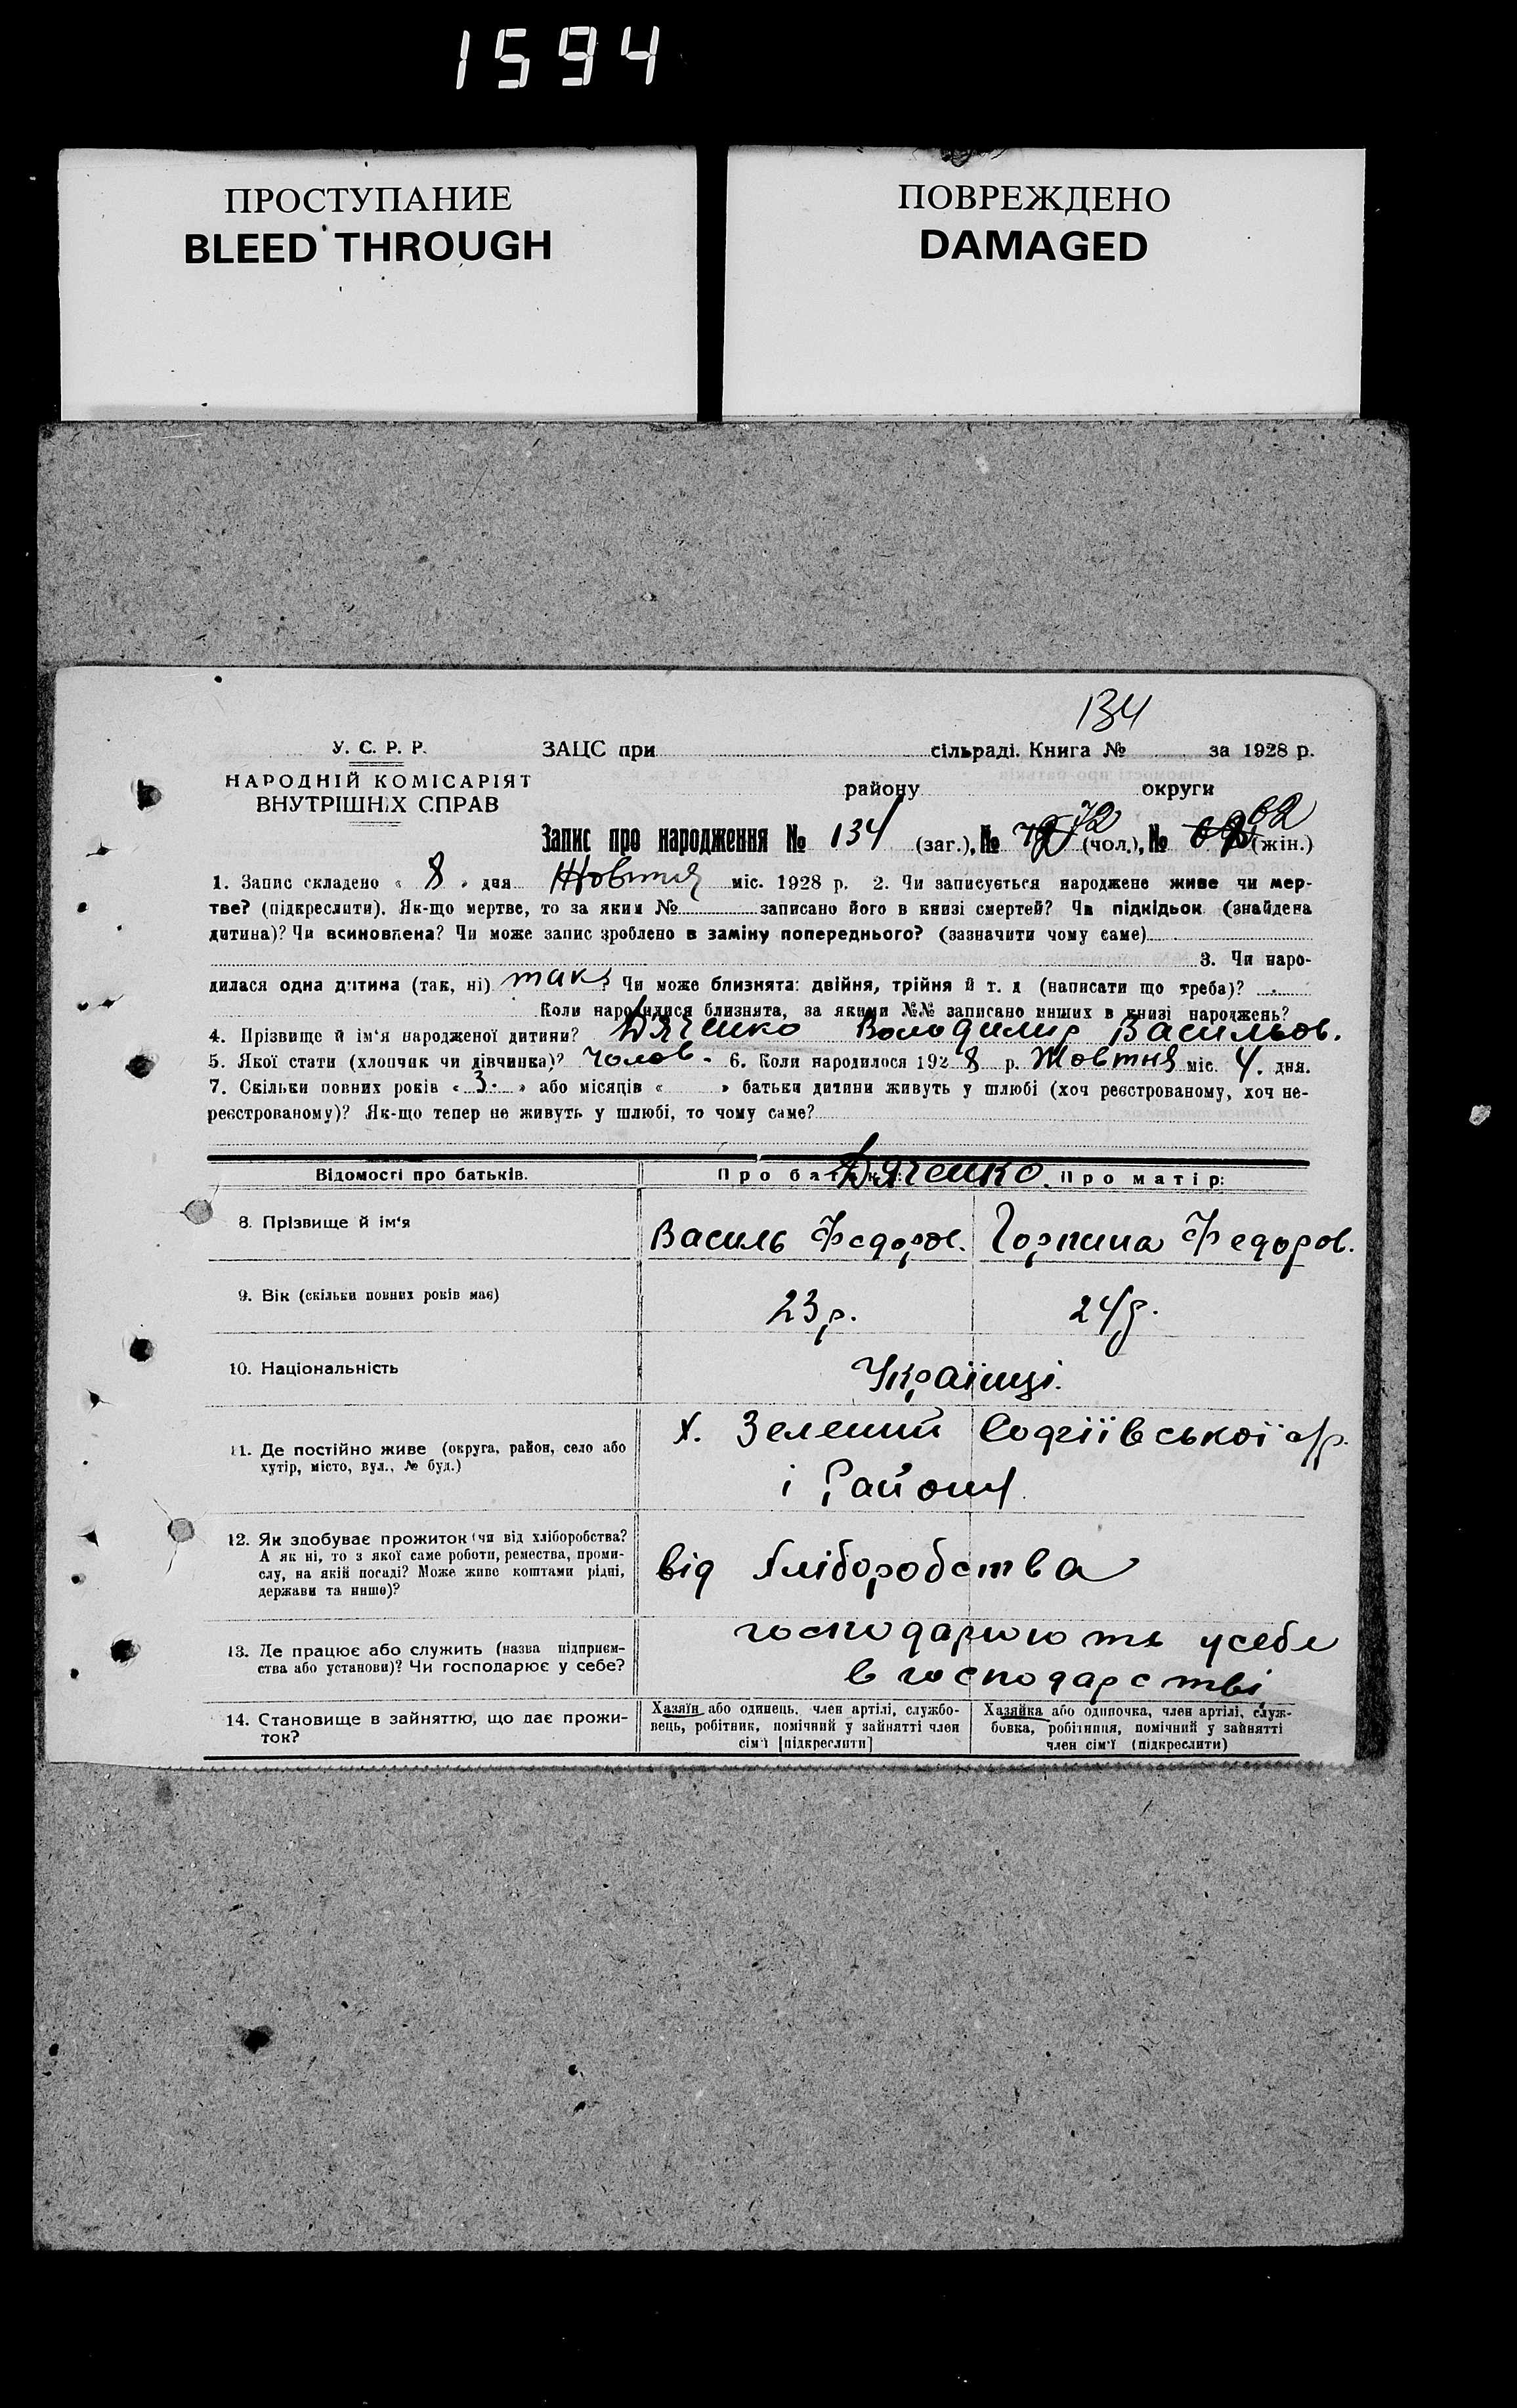 1594
ПРОСТУПАНИЕ
BLEED THROUGH
ПОВРЕЖДЕНО
DAMAGED
134
У. С. Р. Р.
НАРОДНІЙ КОМІСАРІЯТ
ВНУТРІШНІХ СПРАВ
ЗАЦС при сільраді. Книга № за 1928 р.
району округи
Запис про народження № 134 (заг.), № 72 (чол.), № 62 (жін.)
1. Запис складено « 8 » дня Жовтня міс. 1928 р. 2. Чи записується народжене живе чи мер-
тве? (підкреслити). Як-що мертве, то за яким № записано його в книзі смертей? Чи підкідьок (знайдена
дитина)? Чи всиновлена? Чи може запис зроблено в заміну попереднього? (зазначити чому саме)
3. Чи наро-
дилася одна дитина (так, ні) так? Чи може близнята: двійня, трійня й т. д (написати що треба)?
Коли народилися близнята, за якими №№ записано инших в книзі народжень?
4. Прізвище й ім'я народженої дитини? Дяченко Володимир Васильов.
5. Якої стати (хлопчик чи дівчинка)? Чолов. 6. Коли народилося 1928 р. Жовтня міс. 4. дня.
7. Скільки повних років « 3. » або місяців « » батьки дитини живуть у шлюбі (хоч реєстрованому, хоч не-
реєстрованому)? Як-що тепер не живуть у шлюбі, то чому саме?
Відомості про батьків. Про батька: Про матір:
Дяченко.
8. Прізвище й ім'я
Василь Федоров. Горпина Федоров.
9. Вік (скільки повних років має)
23 р. 24 р.
10. Національність
Українці.
11. Де постійно живе (округа, район, село або
хутір, місто, вул., № буд.)
х. Зелений Софіївської с/р.
і Району
12. Як здобуває прожиток (чи від хліборобства?
А як ні, то з якої саме роботи, ремества, проми-
слу, на якій посаді? Може живе коштами рідні,
держави та инше)?
від хліборобства
13. Де працює або служить (назва підприєм-
ства або установи)? Чи господарює у себе?
господарюють усебе
в господарстві
14. Становище в зайняттю, що дає прожи-
ток?
Хазяїн або одинець, член артілі, службо-
вець, робітник, помічний у зайнятті член
сім'ї [підкреслити]
Хазяйка або одиночка, член артілі, служ-
бовка, робітниця, помічний у зайнятті
член сім'ї (підкреслити)